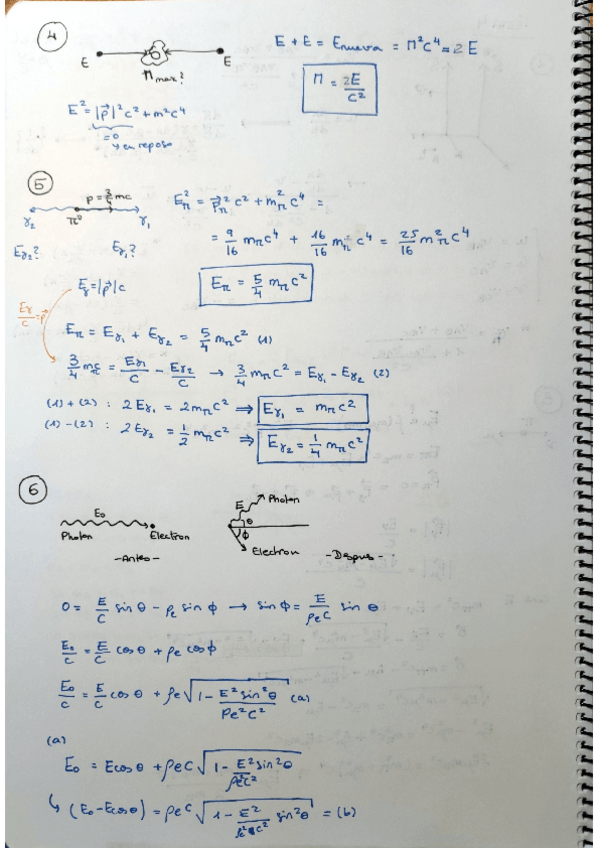 4
E + E = Enueva = M²C⁴ = 2E
E E
Mmax?
M = 2E/C²
E² = |p⃗|²c² + m²c⁴
=0
↳ en reposo
5
p = 3/4 mc
γ₂ π⁰ γ₁
Eγ₂? Eγ₁?
Eπ² = p⃗π² c² + mπ² c⁴ =
= 9/16 mπc⁴ + 16/16 mπ² c⁴ = 25/16 m²π c⁴
Eγ = |p⃗|c
Eπ = 5/4 mπc²
Eγ/c = p
Eπ = Eγ₁ + Eγ₂ = 5/4 mπc² (1)
3/4 mπc = Eγ₁/c - Eγ₂/c → 3/4 mπc² = Eγ₁ - Eγ₂ (2)
(1) + (2) : 2Eγ₁ = 2mπc² ⇒ Eγ₁ = mπc²
(1) - (2) : 2Eγ₂ = 1/2 mπc² ⇒ Eγ₂ = 1/4 mπc²
6
E₀
Photon Electron
-Antes-
E Photon
θ
ϕ
Electron -Despues-
0 = E/C sinθ - pe sinϕ → sinϕ = E/peC sinθ
E₀/c = E/c cosθ + pe cosϕ
E₀/c = E/c cosθ + pe √(1 - E² sin²θ/pe²c²) (a)
(a)
E₀ = Ecosθ + peC √(1 - E² sin²θ/pe²c²)
↳ (E₀ - Ecosθ) = peC √(1 - E²/pe²c² sin²θ) = (b)